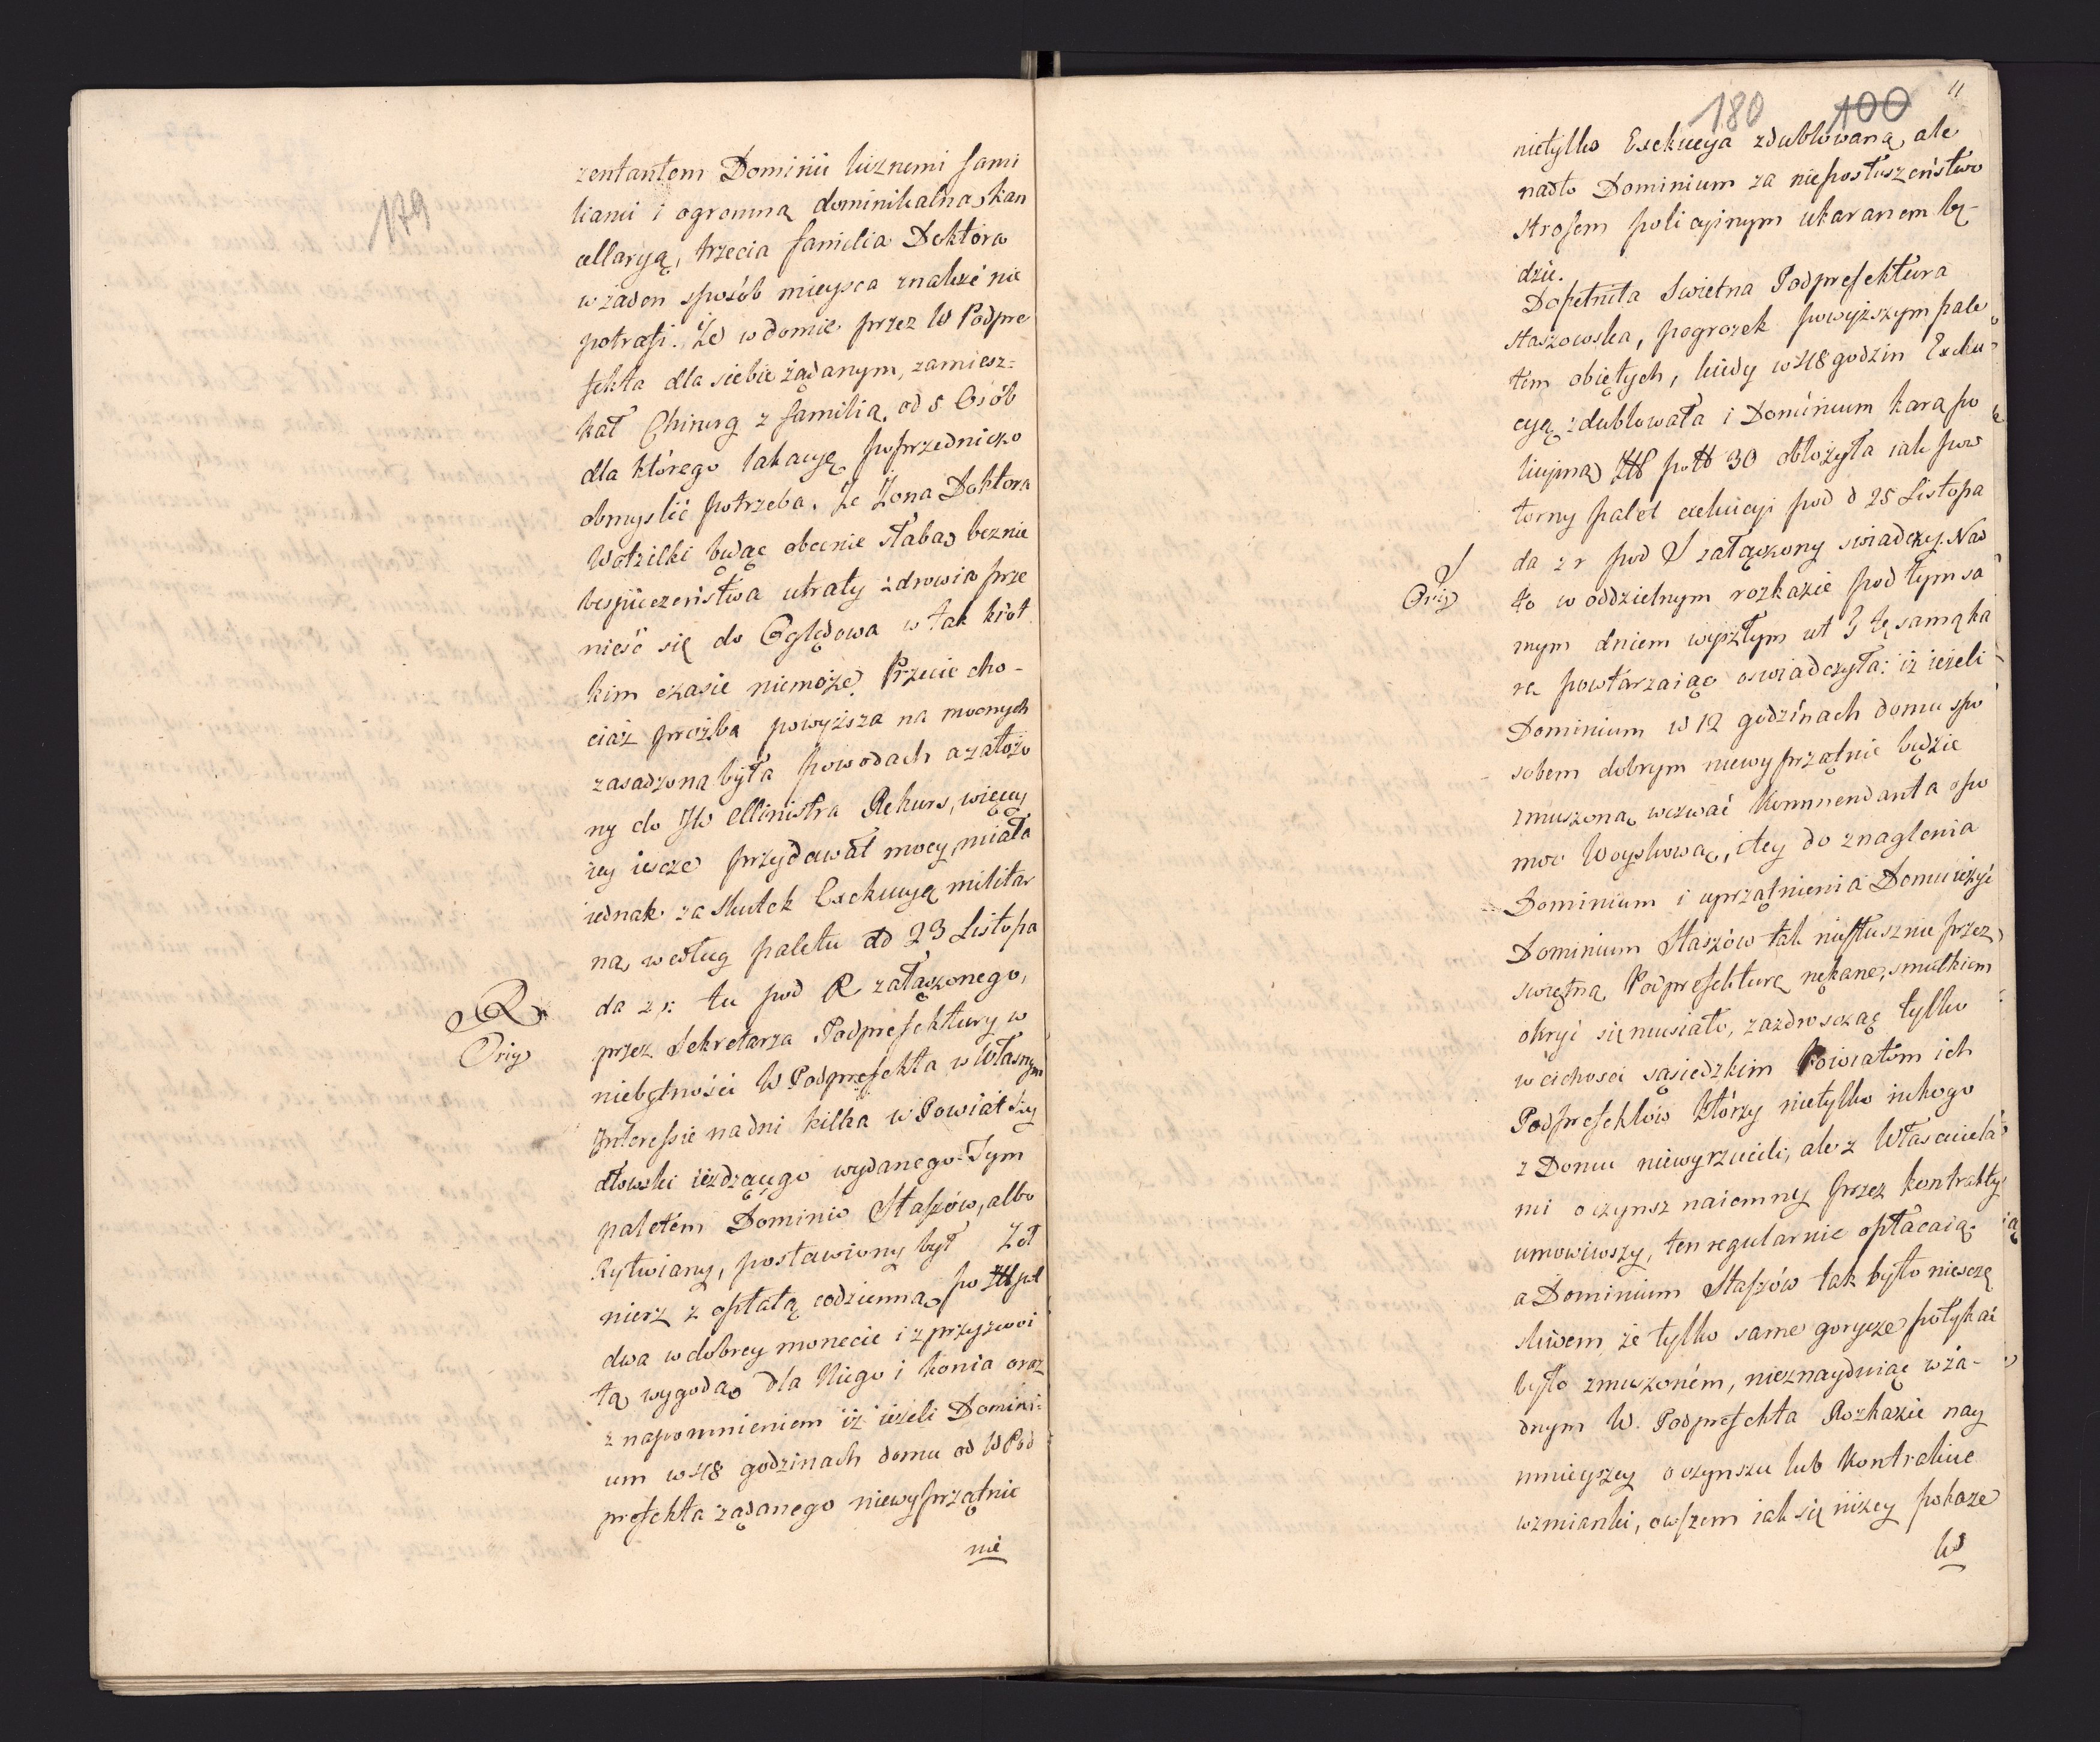 179
zentantem Dominii licznemi fami
liami i ogromną dominikalną kan
cellaryą, trzecia familia Doktora
w żaden sposób mieysca znaleźć nie
potrafi. Że w domie przez W Podpre
fekta dla siebie żądanym, zamiesz-
kał Chirurg z familią od 8 Osób
dla którego lokacyę poprzedniczo
obmyślić potrzeba. Że Żona Doktora
Wotzilki będąc obecnie słabą bez nie
bespieczeństwa utraty zdrowia prze
nieść się do Oględowa w tak krót
kim czasie niemoże. Przecie cho-
ciaż prożba powyższa na mocnych
zasadzona była powodach a założo
ny do JW Ministra Rekurs, więcey
iey iescze przydawał mocy, miała
iednak za skutek Exekucyą militar
ną, według paletu dd 23 Listopa
da z r: tu pod R załączonego,
R
Orig
przez Sekretarza Podprefektury w
niebytności W Podprefekta w Własnym
Interessie na dni kilka w Powiat Szy
dłowski ieżdzącego wydanego. Tym
paletem Dominio Staszów, albo
Rytwiany, postawiony był Żoł
nierz z opłatą codzienną po Złł pol
dwa w dobrey monecie i z przyzwoi
tą wygodą dla Niego i konia oraz
z napomnieniem iż ieżeli Domini-
um w 48 godzinach domu od W Pod
prefekta żądanego niewysprzątnie
nie
180 100 11
nietylko Exekucya zdublowaną, ale
nadto Dominium za nieposłuszeństwo
strofem policyinym ukaranem bę-
dzie.
Dopełniła Swietna Podprefektura
Staszowska, pogrozek powyższym pale
tem obiętych, kiedy w 48 godzin Exeku
cyą zdublowała i Dominium karą po
licyiną Złł poll 30 obłożyła iak pow
torny palet exekucyi pod d 25 Listopa
da z r pod S załączony swiadczy. Nad
S
Orig
to w oddzielnym rozkazie pod tym sa
mym dniem wyszłym ut S tę samą ka
rę powtarzaiąc oswiadczyła: iż ieżeli
Dominium w 12 godzinach domu spo
sobem dobrym niewyprzątnie będzie
zmuszoną wezwać Kommendanta o po
moc Woyskową, i tey do znaglenia
Dominium i uprzątnienia Domu użyć
Dominium Staszów tak niesłusznie przez
swietną Podprefekturę nękane, smutkiem
okryć się musiało, zazdroscząc tylko
w cichosci sąsiedzkim Powiatom ich
Podprefektów którzy nietylko nikogo
z Domu niewyrzucili, ale z Właściciela
mi o czynsz naiemny przez kontrakty
umowiwszy, ten regularnie opłacaią
a Dominium Staszów tak było niesczę
sliwem że tylko same gorycze połykać
było zmuszoném, nieznayduiąc w ża-
dnym W. Podprefekta Rozkazie nay
mnieyszey o czynszu lub Kontrakcie
wzmianki, owszem iak się niżey pokaże
W